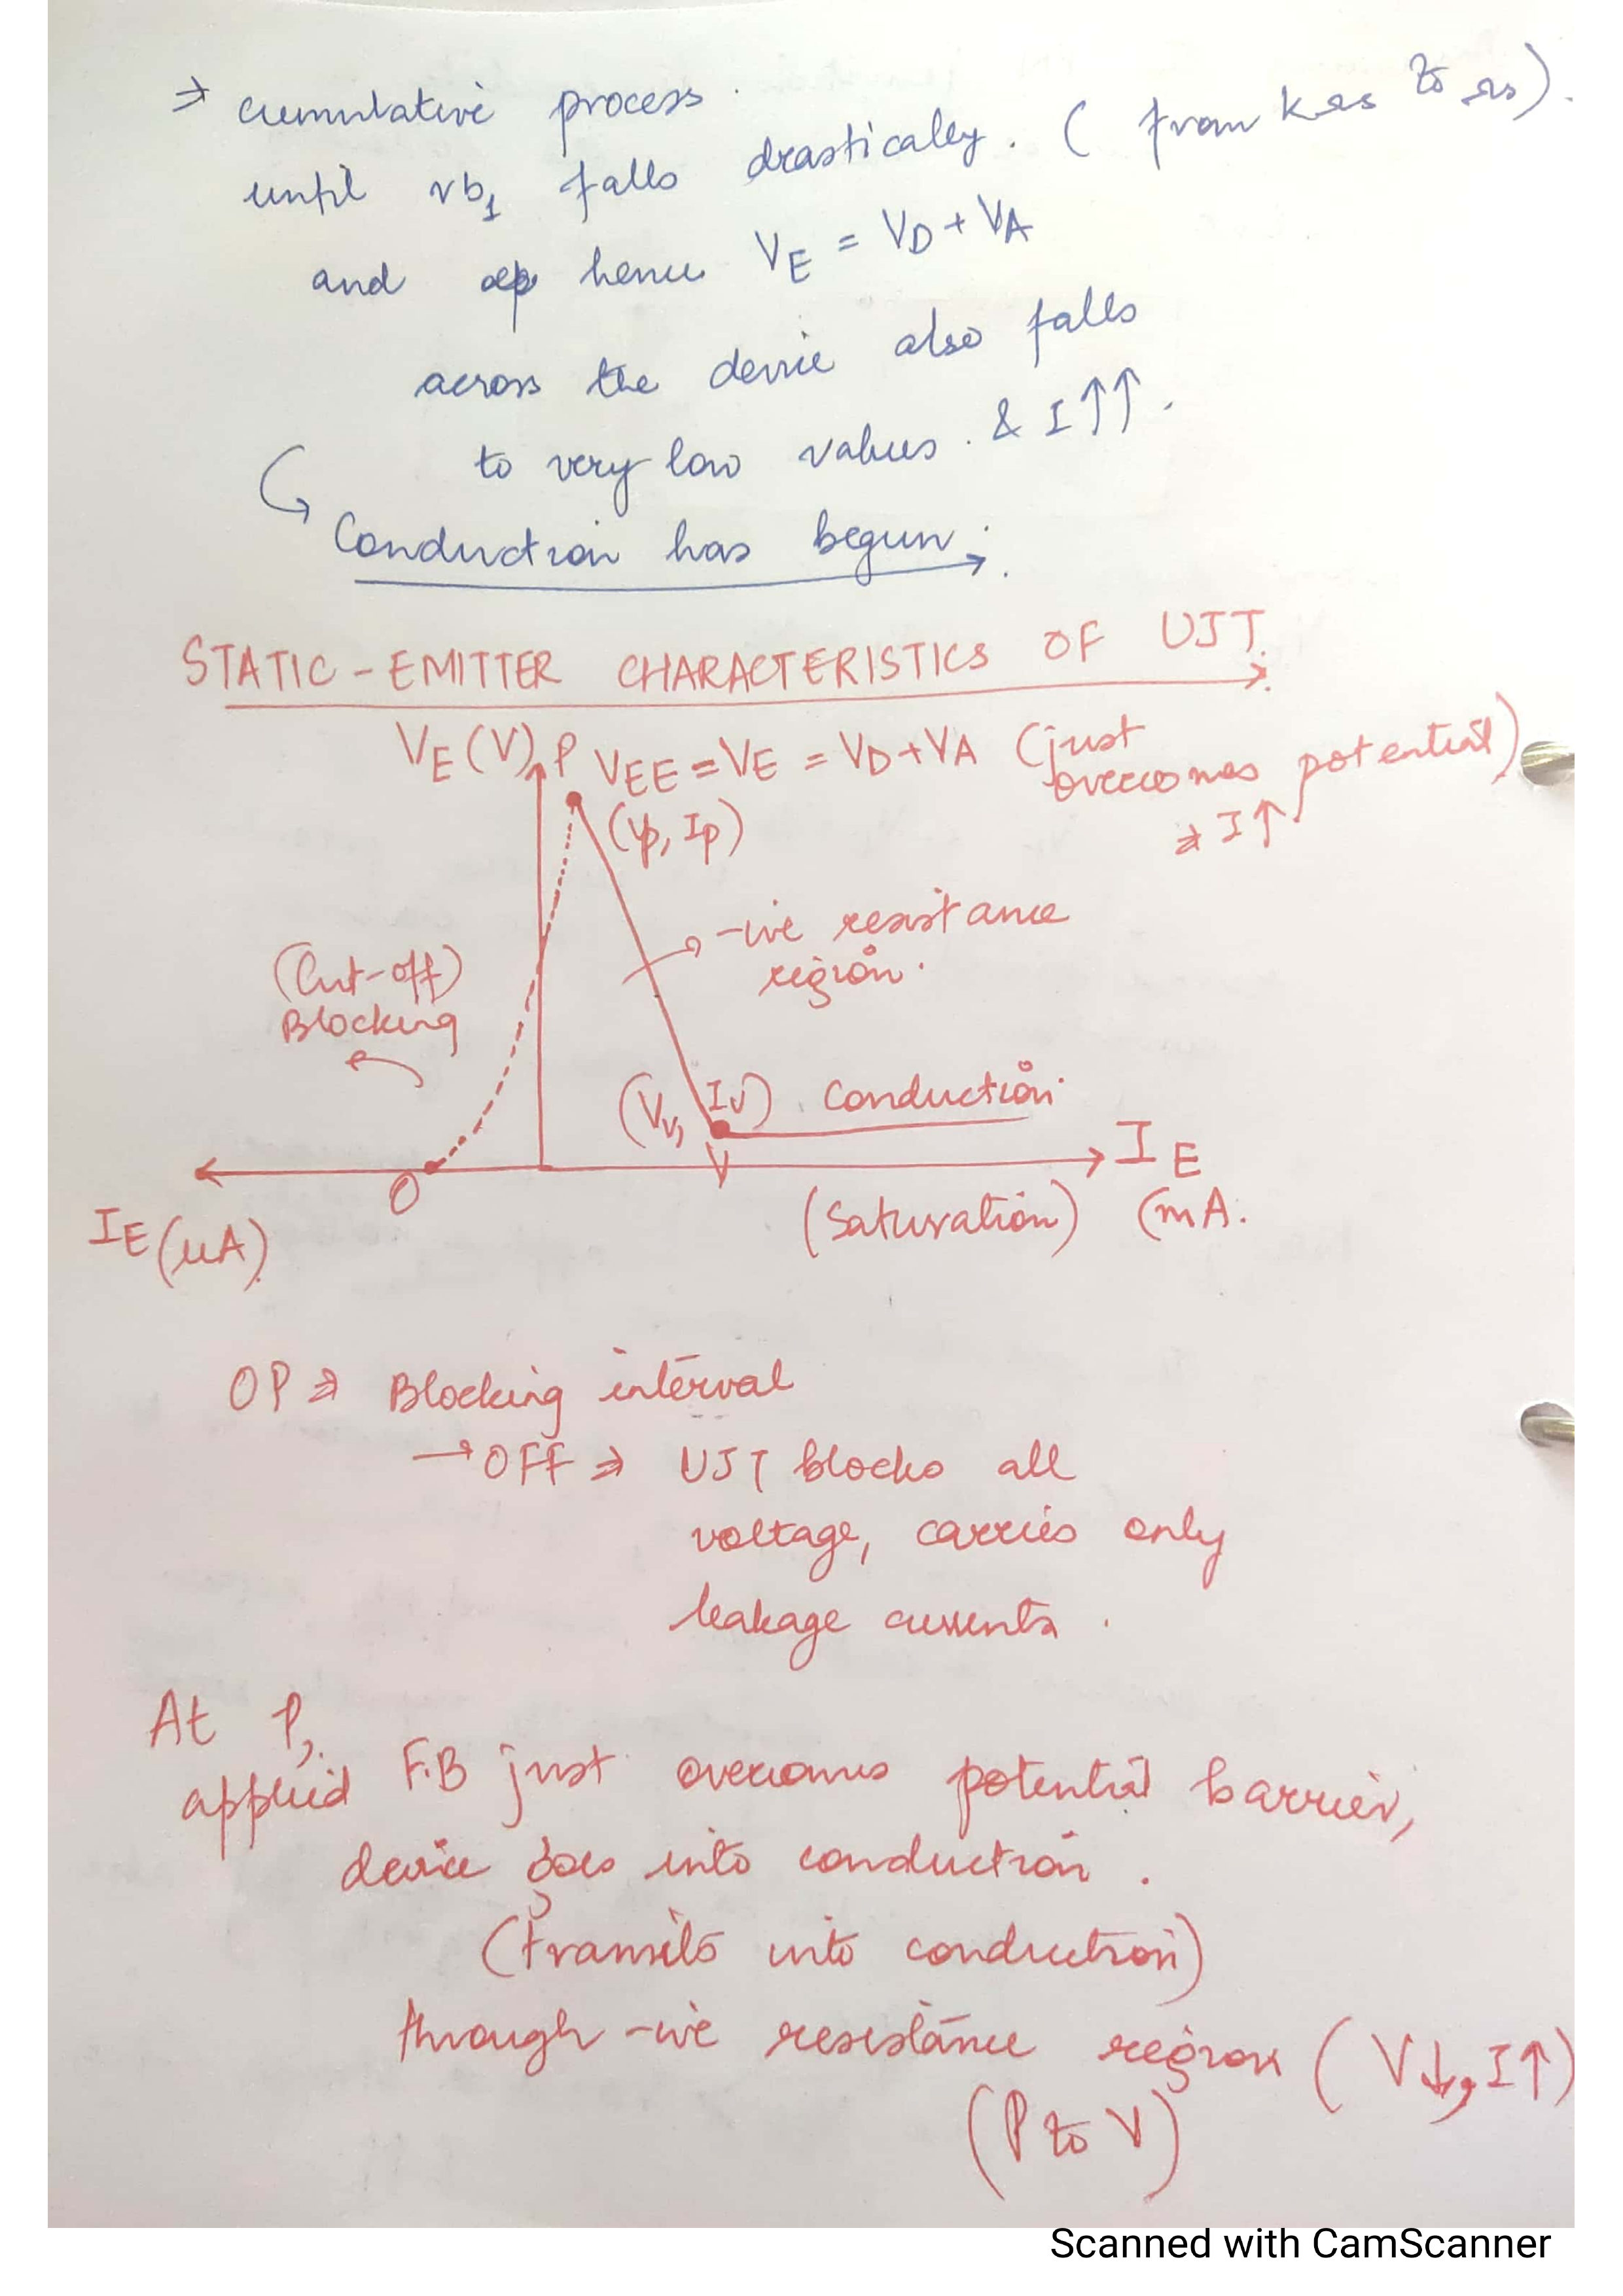 ⇒ cumulative process.
until rb₁ falls drastically. (from kΩs to Ωs).
and hence VE = VD + VA
across the device also falls
to very low values. & I↑↑.
Conduction has begun.
STATIC-EMITTER CHARACTERISTICS OF UJT.
VE(V) P VEE = VE = VD + VA (just overcomes potential)
⇒ I↑
(Vp, Ip)
-ive resistance
region.
(Cut-off)
Blocking
(Vv, Iv) Conduction
O V IE
IE(μA) (Saturation) (mA.
OP ⇒ Blocking interval
→ OFF ⇒ UJT blocks all
voltage, carries only
leakage currents.
At P,
applied F.B just overcomes potential barrier,
device goes into conduction.
(transits into conduction)
through -ive resistance region (V↓, I↑)
(P to V)
Scanned with CamScanner